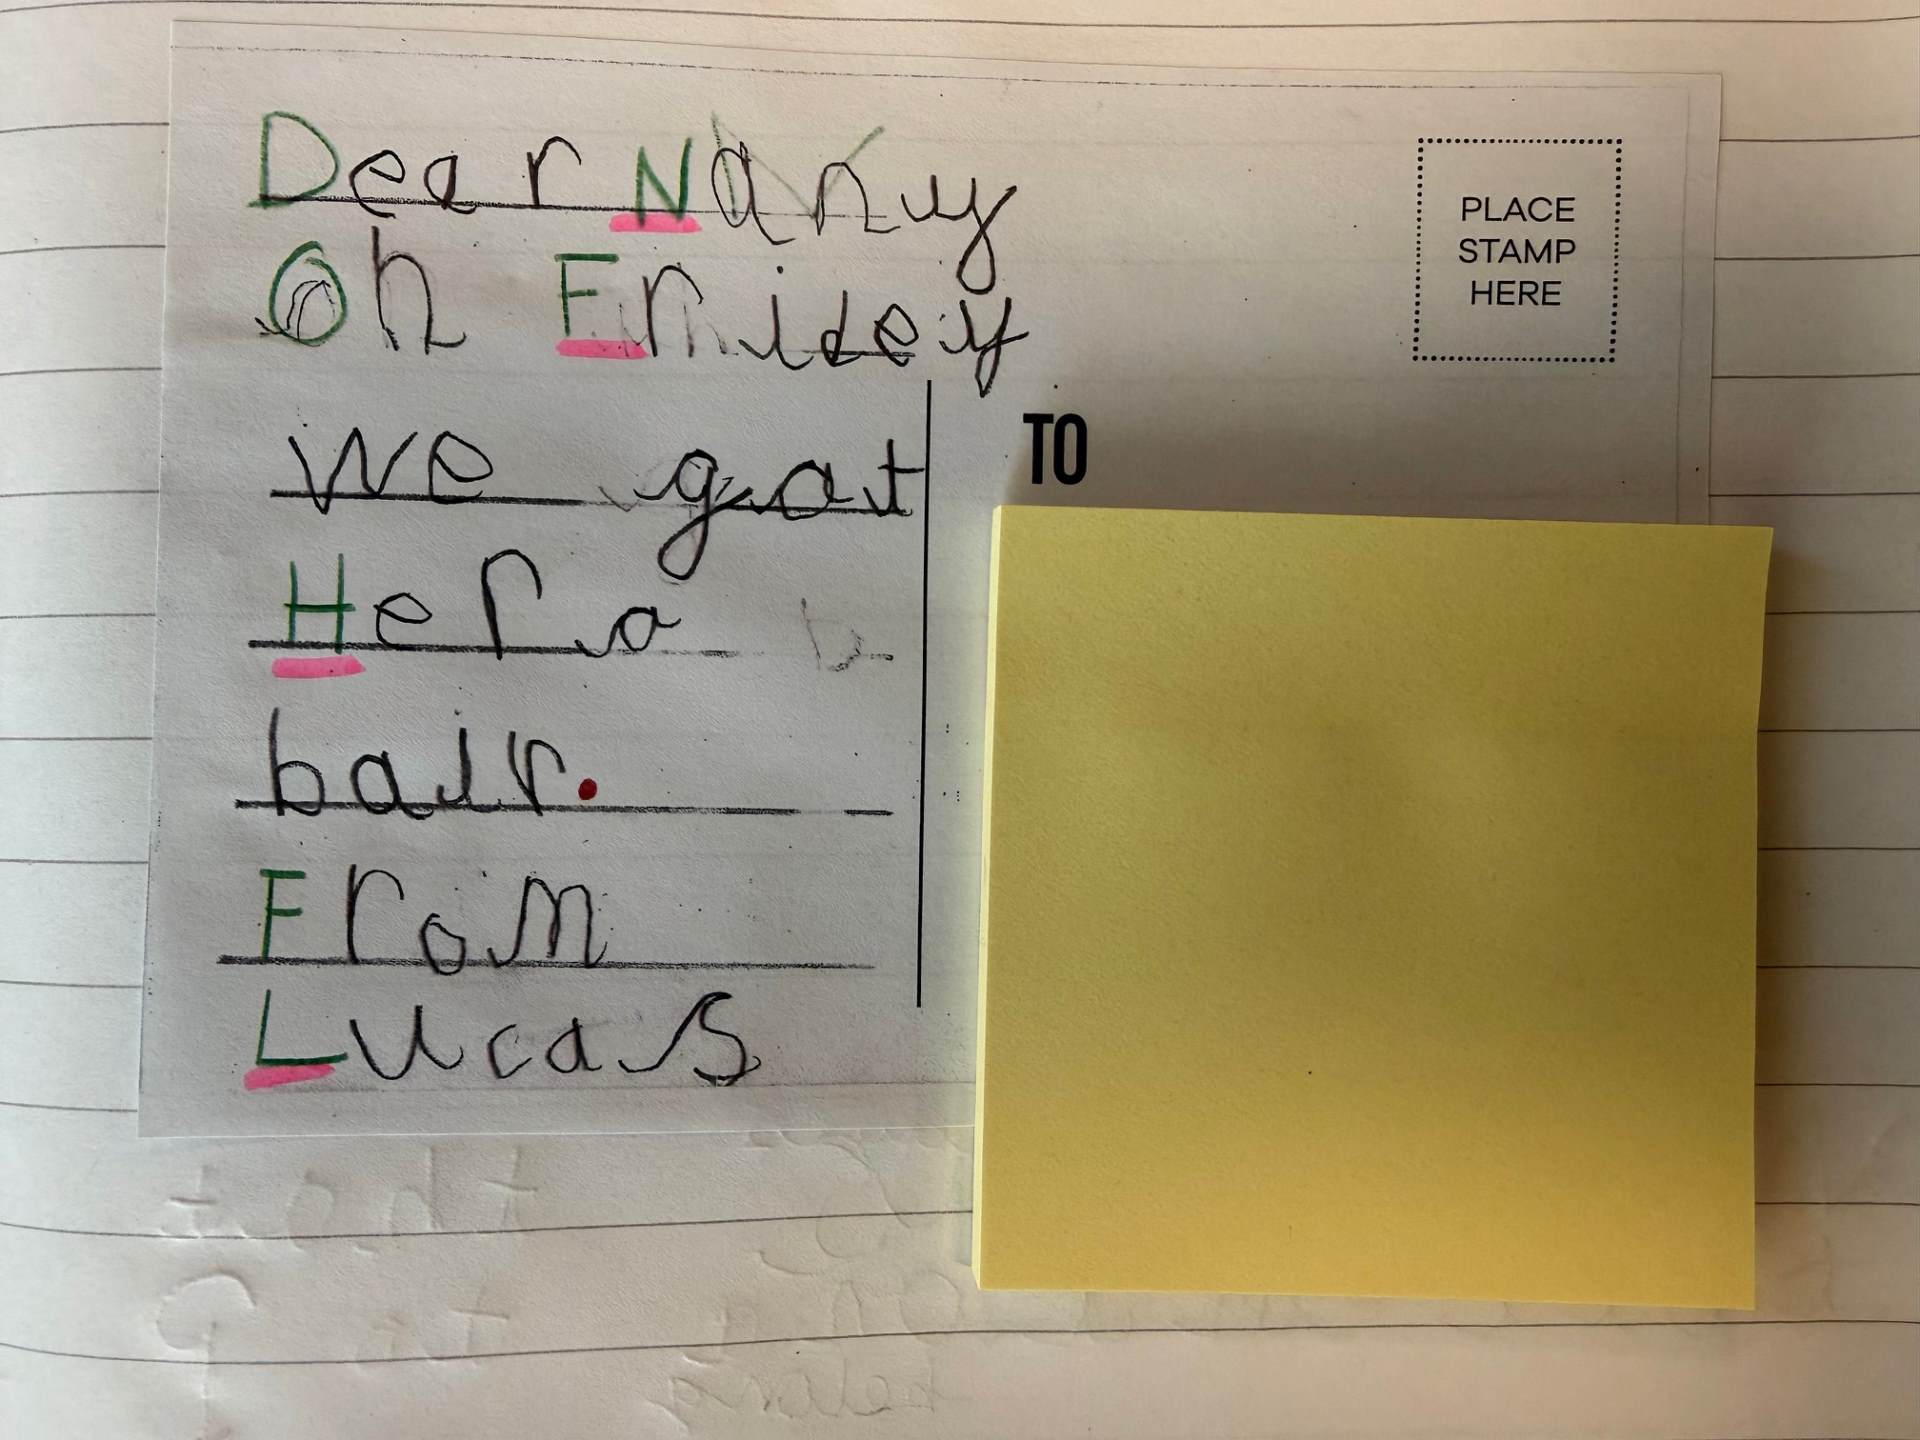 Dear Nany
On Fridey
we got
Her a
bair.
From
Lucas
PLACE
STAMP
HERE
TO